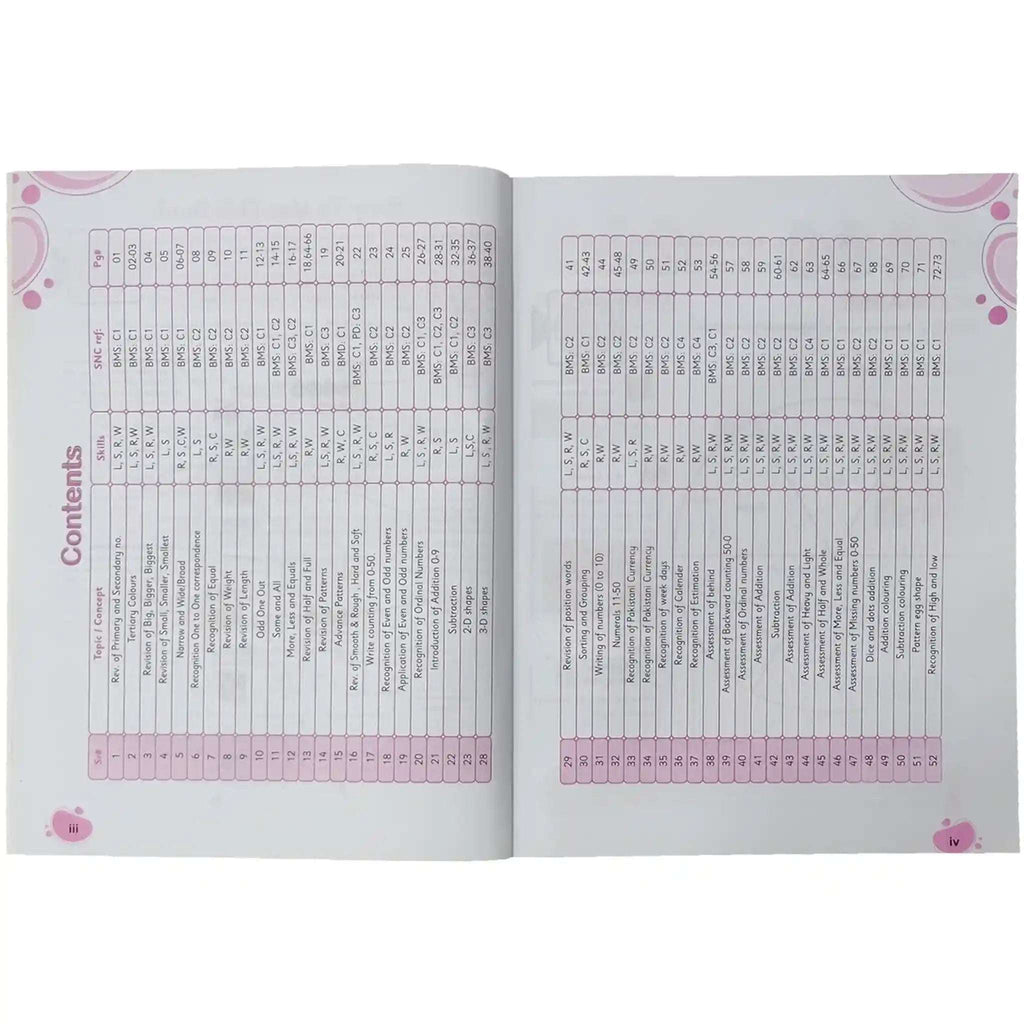 Contents
Sr# Topic / Concept Skills SNC ref: Pg#
1 Rev. of Primary and Secondary no. L, S, R, W BMS: C1 01
2 Tertiary Colours L, S, R,W BMS: C1 02-03
3 Revision of Big, Bigger, Biggest L, S, R, W BMS: C1 04
4 Revision of Small, Smaller, Smallest L, S BMS: C1 05
5 Narrow and Wide/Broad R, S ,C,W BMS: C1 06-07
6 Recognition One to One correspondence L, S BMS: C2 08
7 Recognition of Equal R, S, C BMS: C2 09
8 Revision of Weight R,W BMS: C2 10
9 Revision of Length R,W BMS: C2 11
10 Odd One Out L, S, R, W BMS: C1 12-13
11 Some and All L, S, R,W BMS: C1, C2 14-15
12 More, Less and Equals L,S, R, W BMS: C3, C2 16-17
13 Revision of Half and Full R,W BMS: C1 18,64-66
14 Revision of Patterns L,S, R, W BMS: C3 19
15 Advance Patterns R, W, C BMD: C1 20-21
16 Rev. of Smooth & Rough , Hard and Soft L, S , R, W BMS: C1, PD: C3 22
17 Write counting from 0-50. R, S, C BMS: C2 23
18 Recognition of Even and Odd numbers L, S , R BMS: C2 24
19 Application of Even and Odd numbers R, W BMS: C2 25
20 Recognition of Ordinal Numbers L, S , R, W BMS: C1, C3 26-27
21 Introduction of Addition 0-9 R, S BMS: C1, C2, C3 28-31
22 Subtraction L, S BMS: C1, C2 32-35
23 2-D shapes L,S,C BMS: C3 36-37
28 3-D shapes L, S , R, W BMS: C3 38-40
iii
29 Revision of position words L, S, R, W BMS: C2 41
30 Sorting and Grouping R, S, C BMS: C1 42-43
31 Writing of numbers (0 to 10) R,W BMS: C2 44
32 Numerals 11-50 R,W BMS: C2 45-48
33 Recognition of Pakistani Currency L, S , R BMS: C2 49
34 Recognition of Pakistani Currency R,W BMS: C2 50
35 Recognition of week days R,W BMS: C2 51
36 Recognition of Calender R,W BMS: C4 52
37 Recognition of Estimation R,W BMS: C4 53
38 Assessment of behind L, S, R,W BMS: C3, C1 54-56
39 Assessment of Backward counting 50-0 L, S, R,W BMS: C2 57
40 Assessment of Ordinal numbers L, S, R,W BMS: C2 58
41 Assessment of Addition L, S, R,W BMS: C2 59
42 Subtraction L, S, R,W BMS: C2 60-61
43 Assessment of Addition L, S, R,W BMS: C2 62
44 Assessment of Heavy and Light L, S, R,W BMS: C4 63
45 Assessment of Half and Whole L, S, R,W BMS: C1 64-65
46 Assessment of More, Less and Equal L, S, R,W BMS: C1 66
47 Assessment of Missing numbers 0-50 L, S, R,W BMS: C2 67
48 Dice and dots addition L, S, R,W BMS: C2 68
49 Addition colouring L, S, R,W BMS: C1 69
50 Subtraction colouring L, S, R,W BMS: C1 70
51 Pattern egg shape L, S, R,W BMS: C1 71
52 Recognition of High and low L, S, R,W BMS: C1 72-73
iv